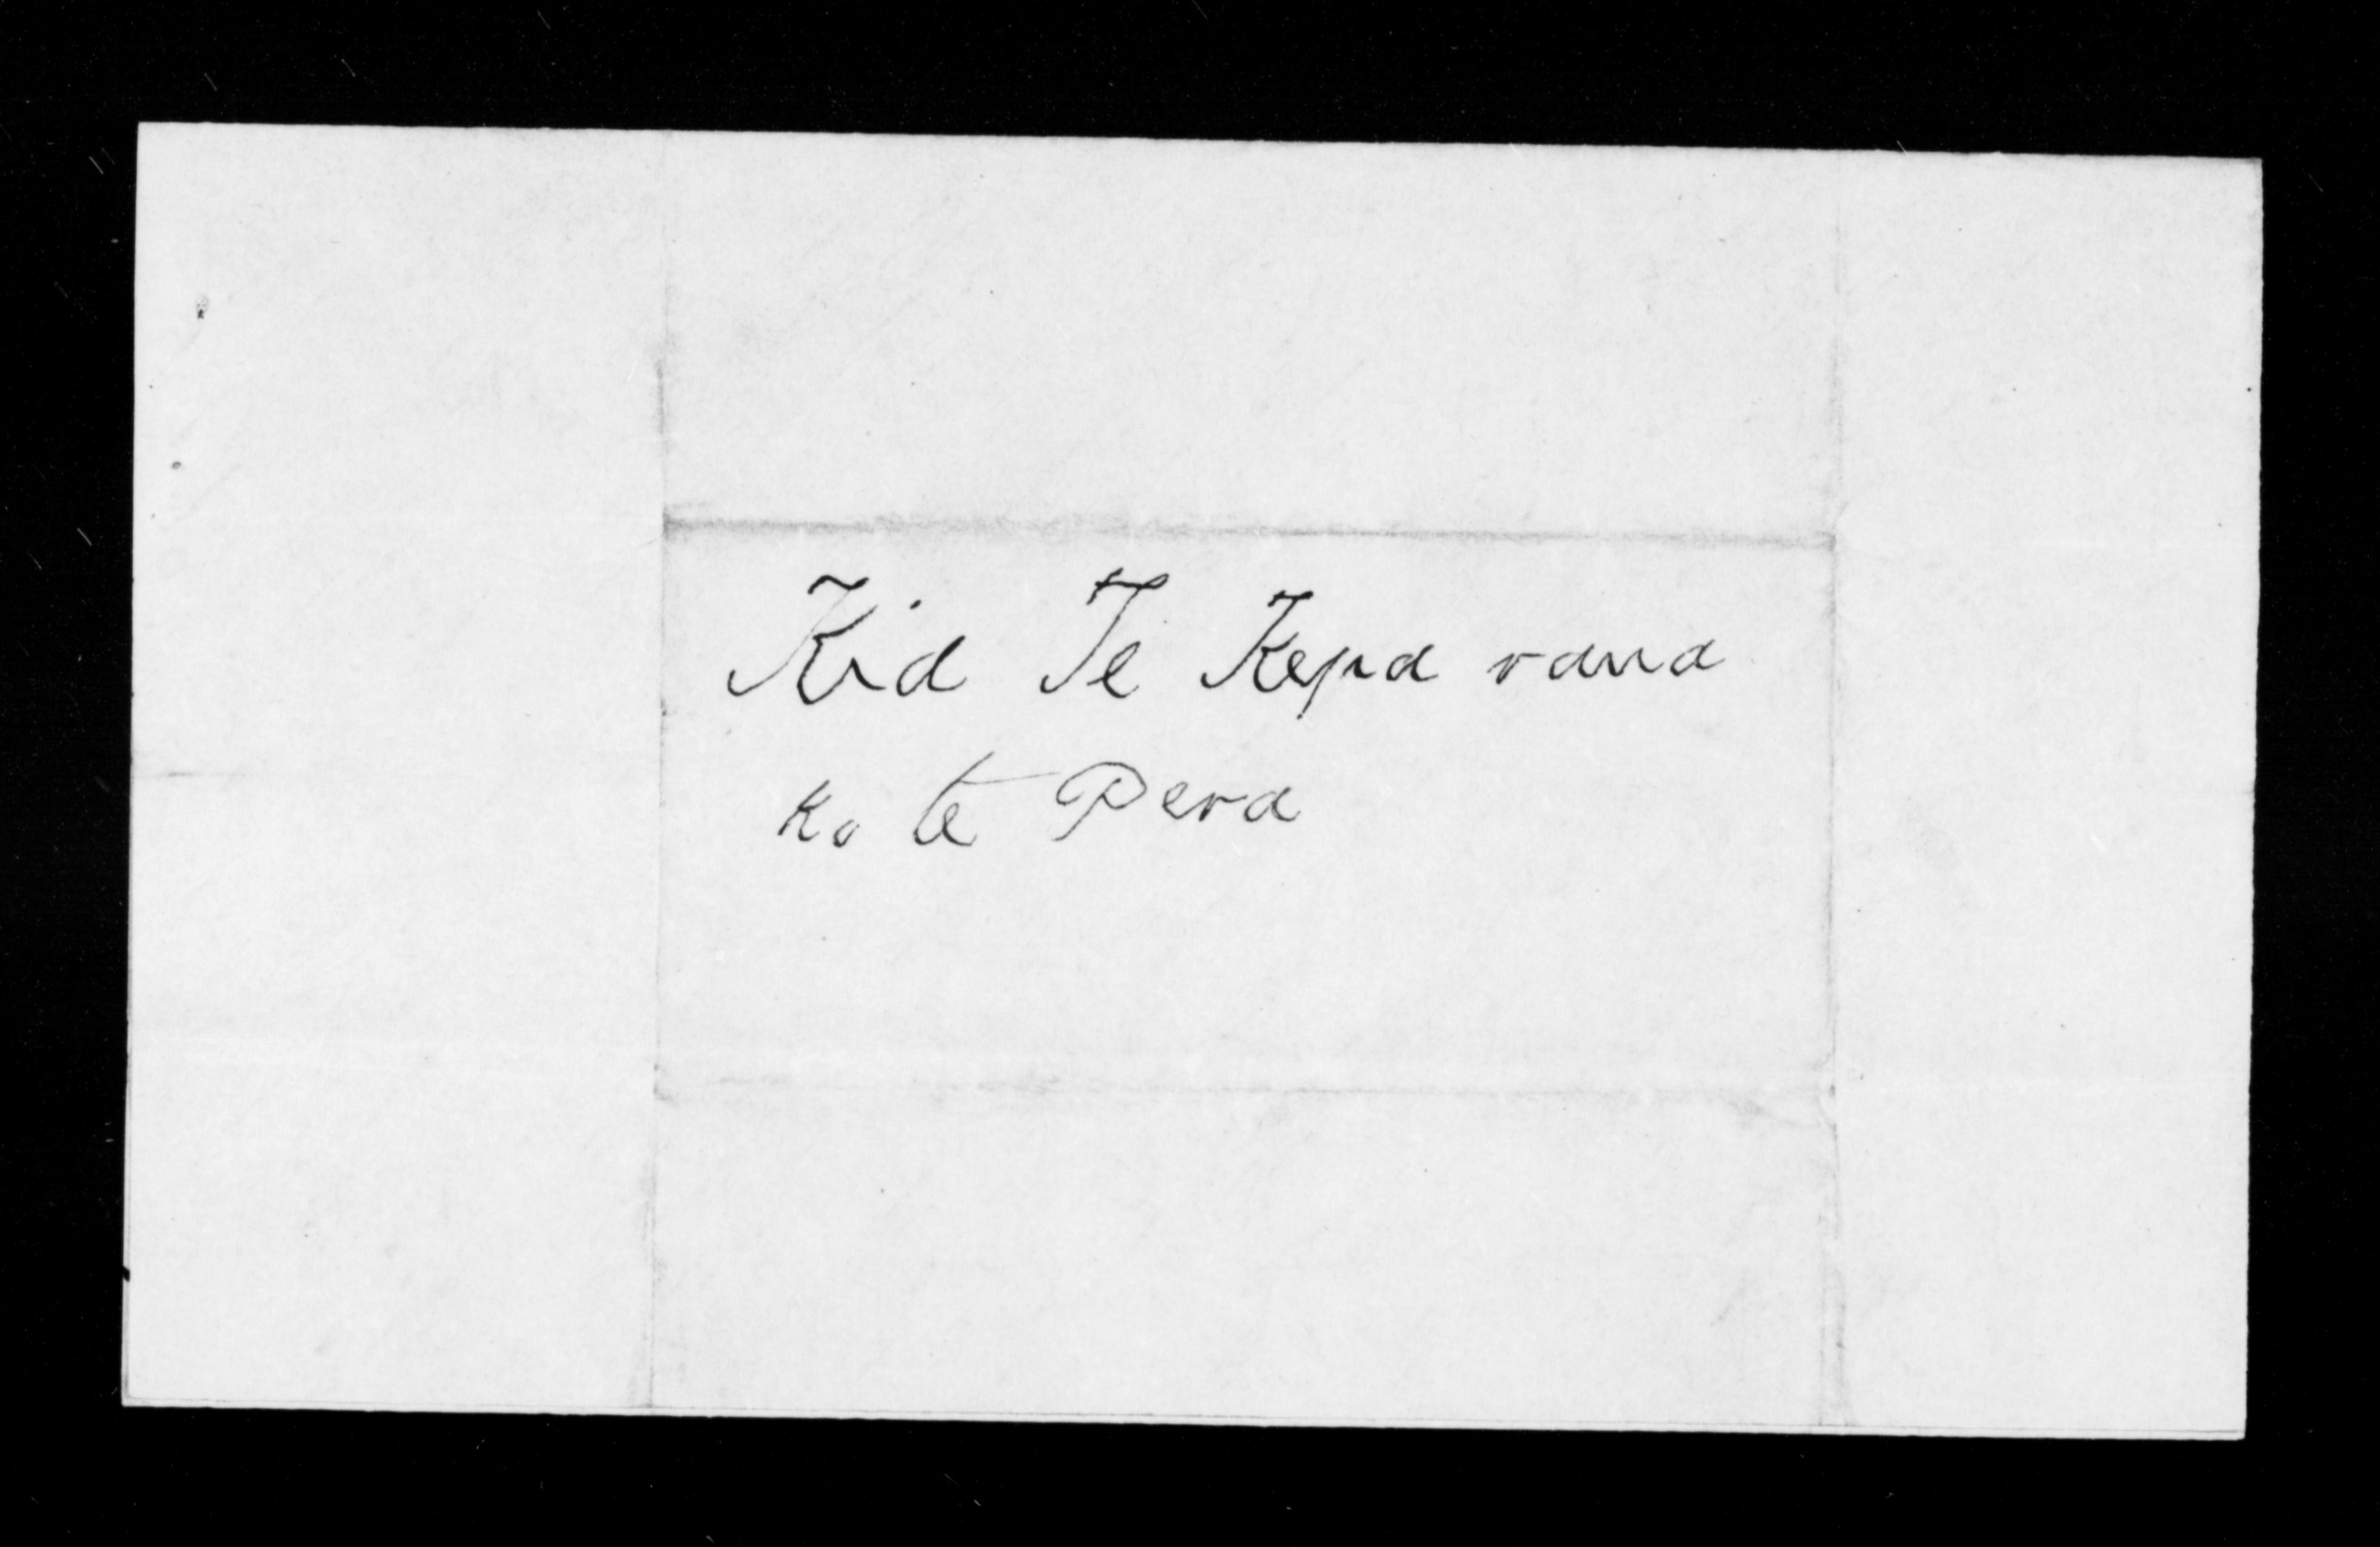 Kia Te Kepa raua
ko te Pera